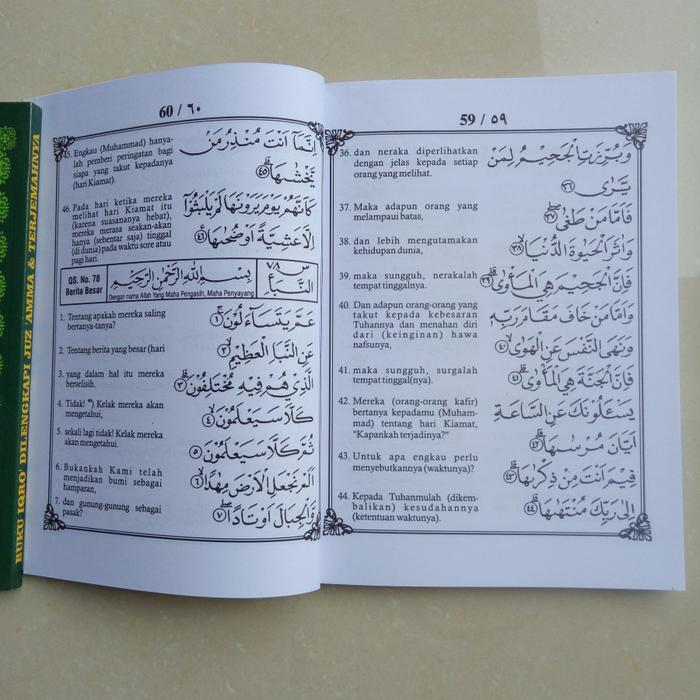 59 / ٥٩
36. dan neraka diperlihatkan
dengan jelas kepada setiap
orang yang melihat.
وَبُرِّزَتِ الْجَحِيمُ لِمَنْ
يَّرٰى ٣٦
37. Maka adapun orang yang
melampaui batas,
فَاَمَّا مَنْ طَغٰى ٣٧
38. dan lebih mengutamakan
kehidupan dunia,
وَاٰثَرَ الْحَيٰوةَ الدُّنْيَا ٣٨
39. maka sungguh, nerakalah
tempat tinggalnya.
فَاِنَّ الْجَحِيْمَ هِيَ الْمَأْوٰى ٣٩
40. Dan adapun orang-orang yang
takut kepada kebesaran
Tuhannya dan menahan diri
dari (keinginan) hawa
nafsunya,
وَاَمَّا مَنْ خَافَ مَقَامَ رَبِّهٖ
وَنَهَى النَّفْسَ عَنِ الْهَوٰى ٤٠
41. maka sungguh, surgalah
tempat tinggal(nya).
فَاِنَّ الْجَنَّةَ هِيَ الْمَأْوٰى ٤١
42. Mereka (orang-orang kafir)
bertanya kepadamu (Muham-
mad) tentang hari Kiamat,
"Kapankah terjadinya?"
يَسْـَٔلُوْنَكَ عَنِ السَّاعَةِ
اَيَّانَ مُرْسٰىهَا ٤٢
43. Untuk apa engkau perlu
menyebutkannya (waktunya)?
فِيْمَ اَنْتَ مِنْ ذِكْرٰىهَا ٤٣
44. Kepada Tuhanmulah (dikem-
balikan) kesudahannya
(ketentuan waktunya).
اِلٰى رَبِّكَ مُنْتَهٰىهَا ٤٤
60 / ٦٠
45. Engkau (Muhammad) hanya-
lah pemberi peringatan bagi
siapa yang takut kepadanya
(hari Kiamat).
اِنَّمَآ اَنْتَ مُنْذِرُ مَنْ
يَّخْشٰىهَا ٤٥
46. Pada hari ketika mereka
melihat hari Kiamat itu
(karena suasananya hebat),
mereka merasa seakan-akan
hanya (sebentar saja) tinggal
(di dunia) pada waktu sore atau
pagi hari.
كَاَنَّهُمْ يَوْمَ يَرَوْنَهَا لَمْ يَلْبَثُوْٓا
اِلَّا عَشِيَّةً اَوْ ضُحٰىهَا ٤٦
QS. No. 78
Berita Besar
بِسْمِ اللهِ الرَّحْمٰنِ الرَّحِيْمِ
Dengan nama Allah Yang Maha Pengasih, Maha Penyayang
س ٧٨
النَّبَأ
1. Tentang apakah mereka saling
bertanya-tanya?
عَمَّ يَتَسَاۤءَلُوْنَ ١
2. Tentang berita yang besar (hari
عَنِ النَّبَاِ الْعَظِيْمِ ٢
3. yang dalam hal itu mereka
berselisih.
الَّذِيْ هُمْ فِيْهِ مُخْتَلِفُوْنَ ٣
4. Tidak! *) Kelak mereka akan
mengetahui,
كَلَّا سَيَعْلَمُوْنَ ٤
5. sekali lagi tidak! Kelak mereka
akan mengetahui.
ثُمَّ كَلَّا سَيَعْلَمُوْنَ ٥
6. Bukankah Kami telah
menjadikan bumi sebagai
hamparan,
اَلَمْ نَجْعَلِ الْاَرْضَ مِهٰدًا ٦
7. dan gunung-gunung sebagai
pasak?
وَّالْجِبَالَ اَوْتَادًا ٧
BUKU IQRO' DILENGKAPI JUZ 'AMMA & TERJEMAHNYA